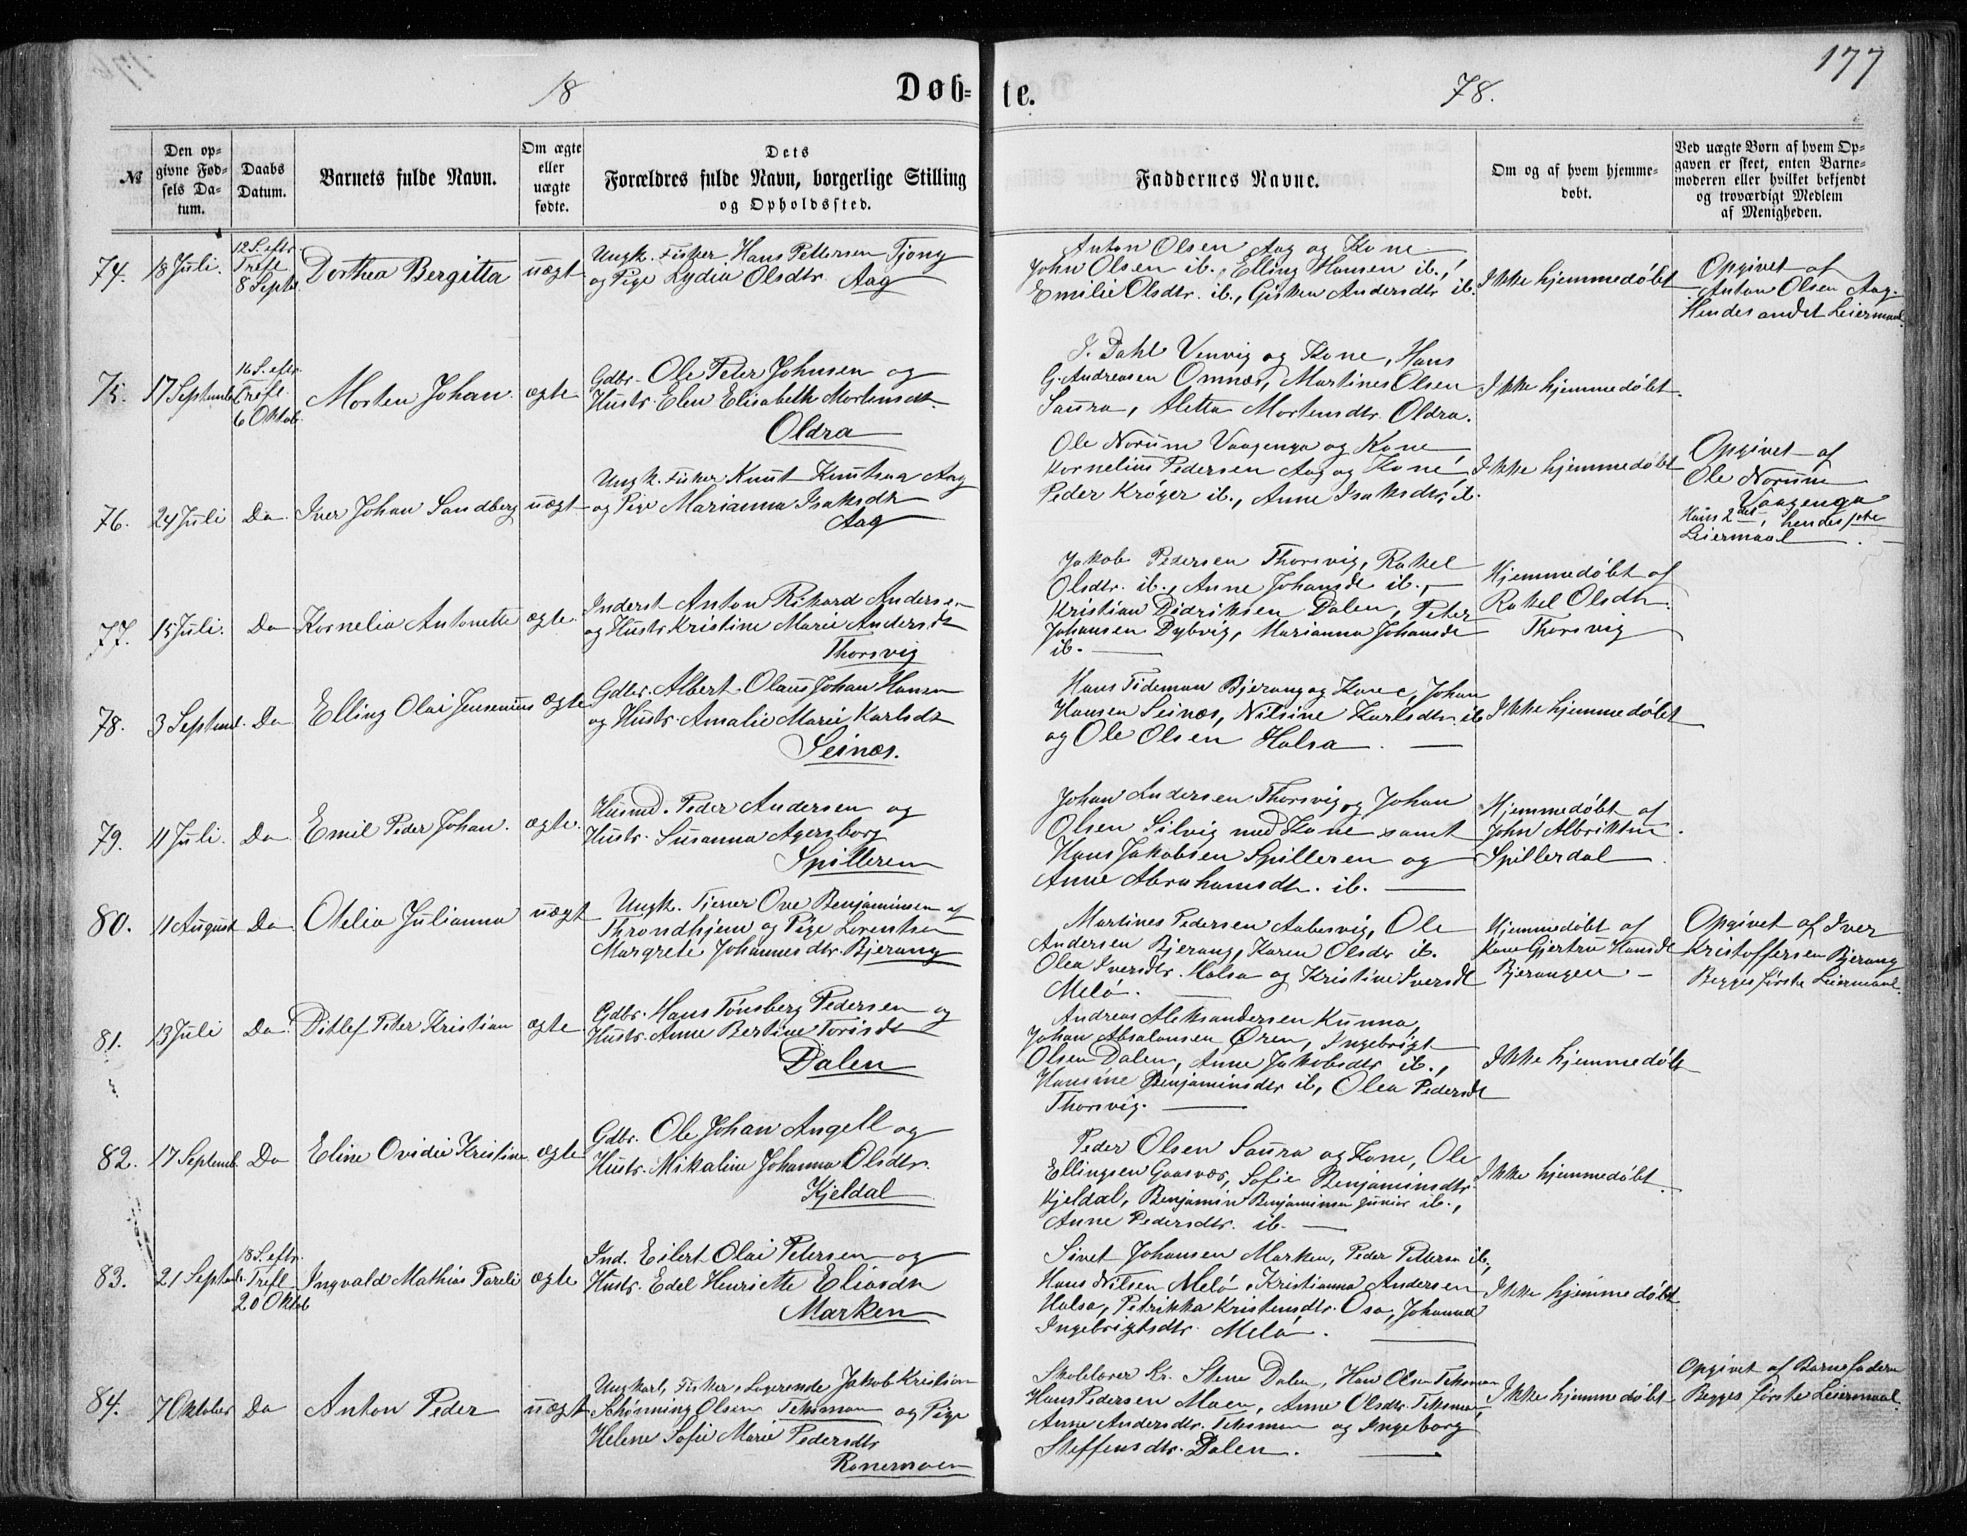 177
18 Døb- te. 78.
№
Den opgivne Fødsels Datum.
Daabs Datum.
Barnets fulde Navn.
Om ægte eller uægte fødte.
Dets Forældres fulde Navn, borgerlige Stilling og Opholdssted.
Faddernes Navne.
Om og af hvem hjemmedøbt.
Ved uægte Børn af hvem Opgaven er skeet, enten Barnemoderen eller hvilket bekjendt og troværdigt Medlem af Menigheden.
74. 18 Juli. 12 S. eftr. Trefl. 8 Septbr. Dorthea Bergitta uægt
Ungk. Fisker Hans Pettersen Tjong
og Pige Lydia Olsdtr. Aag
Anton Olsen Aag og Kone
John Olsen ib., Elling Hansen ib.,
Emilie Olsdtr. ib., Gisken Andersdtr ib.
Ikke hjemmedøbt
Opgivet af
Anton Olsen Aag.
Hendes andet Leiermaal.
75. 17 Septemb. 16 S. eftr. Trefl. 6 Oktob. Morten Johan ægte
Gdbr. Ole Peter Johnsen og
Hustr. Elen Elisabeth Mortensdt.
Oldra
J. Dahl Venvig og Kone, Hans
G. Andreasen Omnæs, Martines Olsen
Saura, Aletta Mortensdtr. Oldra.
Ikke hjemmedøbt.
76. 24 Juli Do Iver Johan Sandberg uægt
Ungk. Fisker Knut Knutsen Aag
og Pige Marianna Isaksdtr
Aag
Ole Norum Vaagenga og Kone
Kornelius Pedersen Aag og Kone,
Peder Krøger ib., Anne Isaksdtr. ib.
Ikke hjemmedøbt
Opgivet af
Ole Norum
Vaagenga
Hans 2det, hendes 1ste
Leiermaal
77. 15 Juli. Do Kornelia Antonette ægte
Inderst Anton Rikard Andersen
og Hustr Kristine Marie Andersdt
Thorsvig
Jakob Pedersen Thorsvig, Rakel
Olsdtr. ib., Anne Johansdt ib.,
Kristian Didriksen Dalen, Peter
Johansen Dybvig, Marianna Johansdt
ib.
Hjemmedøbt af
Rakel Olsdtr.
Thorsvig
78. 3 Septemb. Do Elling Olai Jensenius ægte
Gdbr. Albert Olaus Johan Hansen
og Hustr. Amalie Marie Karlsdt
Seinæs.
Hans Tideman Bjerang og Kone, Johan
Hansen Seinæs, Nilsine Karlsdtr. ib
og Ole Olsen Halsa.
Ikke hjemmedøbt
79. 11 Juli. Do Emil Peder Johan. ægte.
Husmd. Peder Andersen og
Hustr. Susanna Agersborg
Spilleren
Johan Andersen Thorsvig og Johan
Olsen Silvig med Kone samt
Hans Jakobsen Spilleren og
Anne Abrahamsdtr. ib.
Hjemmedøbt af
John Albriktsen
Spillerdal
80. 11 August Do Otelia Julianna uægt
Ungk. Tjener Ove Benjaminsen af
Throndhjem og Pige Lorentse
Margrete Johannesdtr. Bjerang
Martines Pedersen Aabesvig, Ole
Andersen Bjerang, Karen Olsdtr ib.
Olea Iversdtr. Halsa og Kristine Iversdt
Melø.
Hjemmedøbt af
Kone Gjertru Hansdt
Bjerangen
Opgivet af Iver
Kristoffersen Bjerang
Begges første Leiermaal.
81. 13 Juli Do. Ditlef Peter Kristian ægte
Gdbr. Hans Tønsberg Pedersen og
Hustr. Anne Bertine Torisdt
Dalen
Andreas Aleksandersen Kunna,
Johan Absalonsen Øren, Ingebrigt
Olsen Dalen, Anne Jakobsdtr ib.,
Hansine Benjaminsdtr ib, Olea Pedersdt
Thorsvig.
Ikke hjemmedøbt
82. 17 Septemb. Do Eline Ovidie Kristine ægte
Gdbr. Ole Johan Angell og
Hustr. Mikaline Johanna Olsdtr.
Kjeldal
Peder Olsen Saura og Kone, Ole
Ellingsen Gaasvær, Sofie Benjaminsdtr.
Kjeldal, Benjamin Benjaminsen junior ib.,
Anne Pedersdtr. ib.
Ikke hjemmedøbt.
83. 21 Septemb. 18 S. eftr. Trefl. 20 Oktob Ingvald Mathias Pareli ægte
Ind. Eilert Olai Petersen og
Hustr. Edel Henriette Eliasdtr
Marken
Sivet Johansen Marken, Peder Pettersen ib.,
Hans Nilsen Melø, Kristianna Andersen
Halsa, Petrikka Kristensdtr. Osa, Johanna
Ingebrigtsdtr. Melø.
Ikke hjemmedøbt
84. 7 Oktober Do Anton Peder uægt
Ungkarl, Fisker, Logerende Jakob Kristian
Schønning Olsen Teksmon og Pige
Helene Sofie Marie Pedersdtr
Ranemoen
Skolelærer Kr. Stene Dalen, Han Olsen Teksmon
Hans Pedersen Moen, Anne Olsdtr. Teksmon,
Anne Andersdtr. Teksmon og Ingeborg
Steffensdtr. Dalen.
Ikke hjemmedøbt
Opgivet af Barnefadern
Begges første Leiermaal.